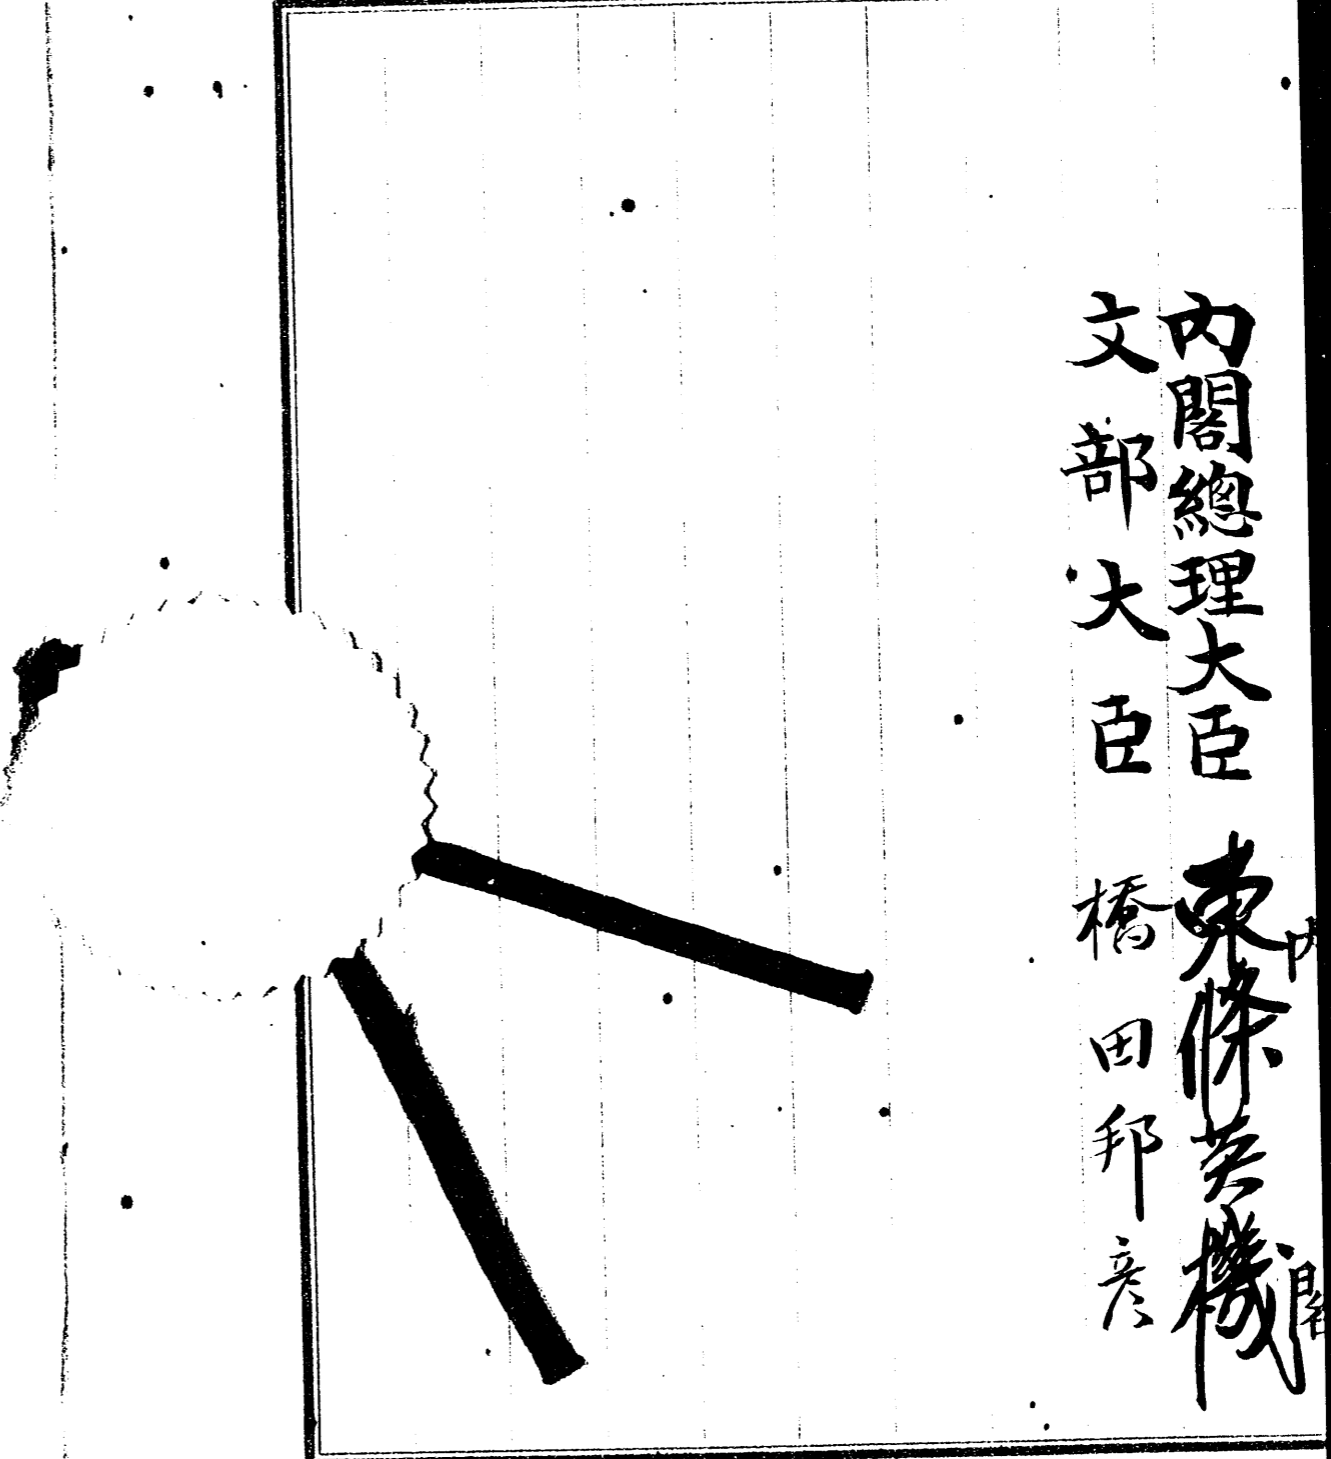 內閣總理大臣 東條英機
文部大臣 橋田邦彦
內閣